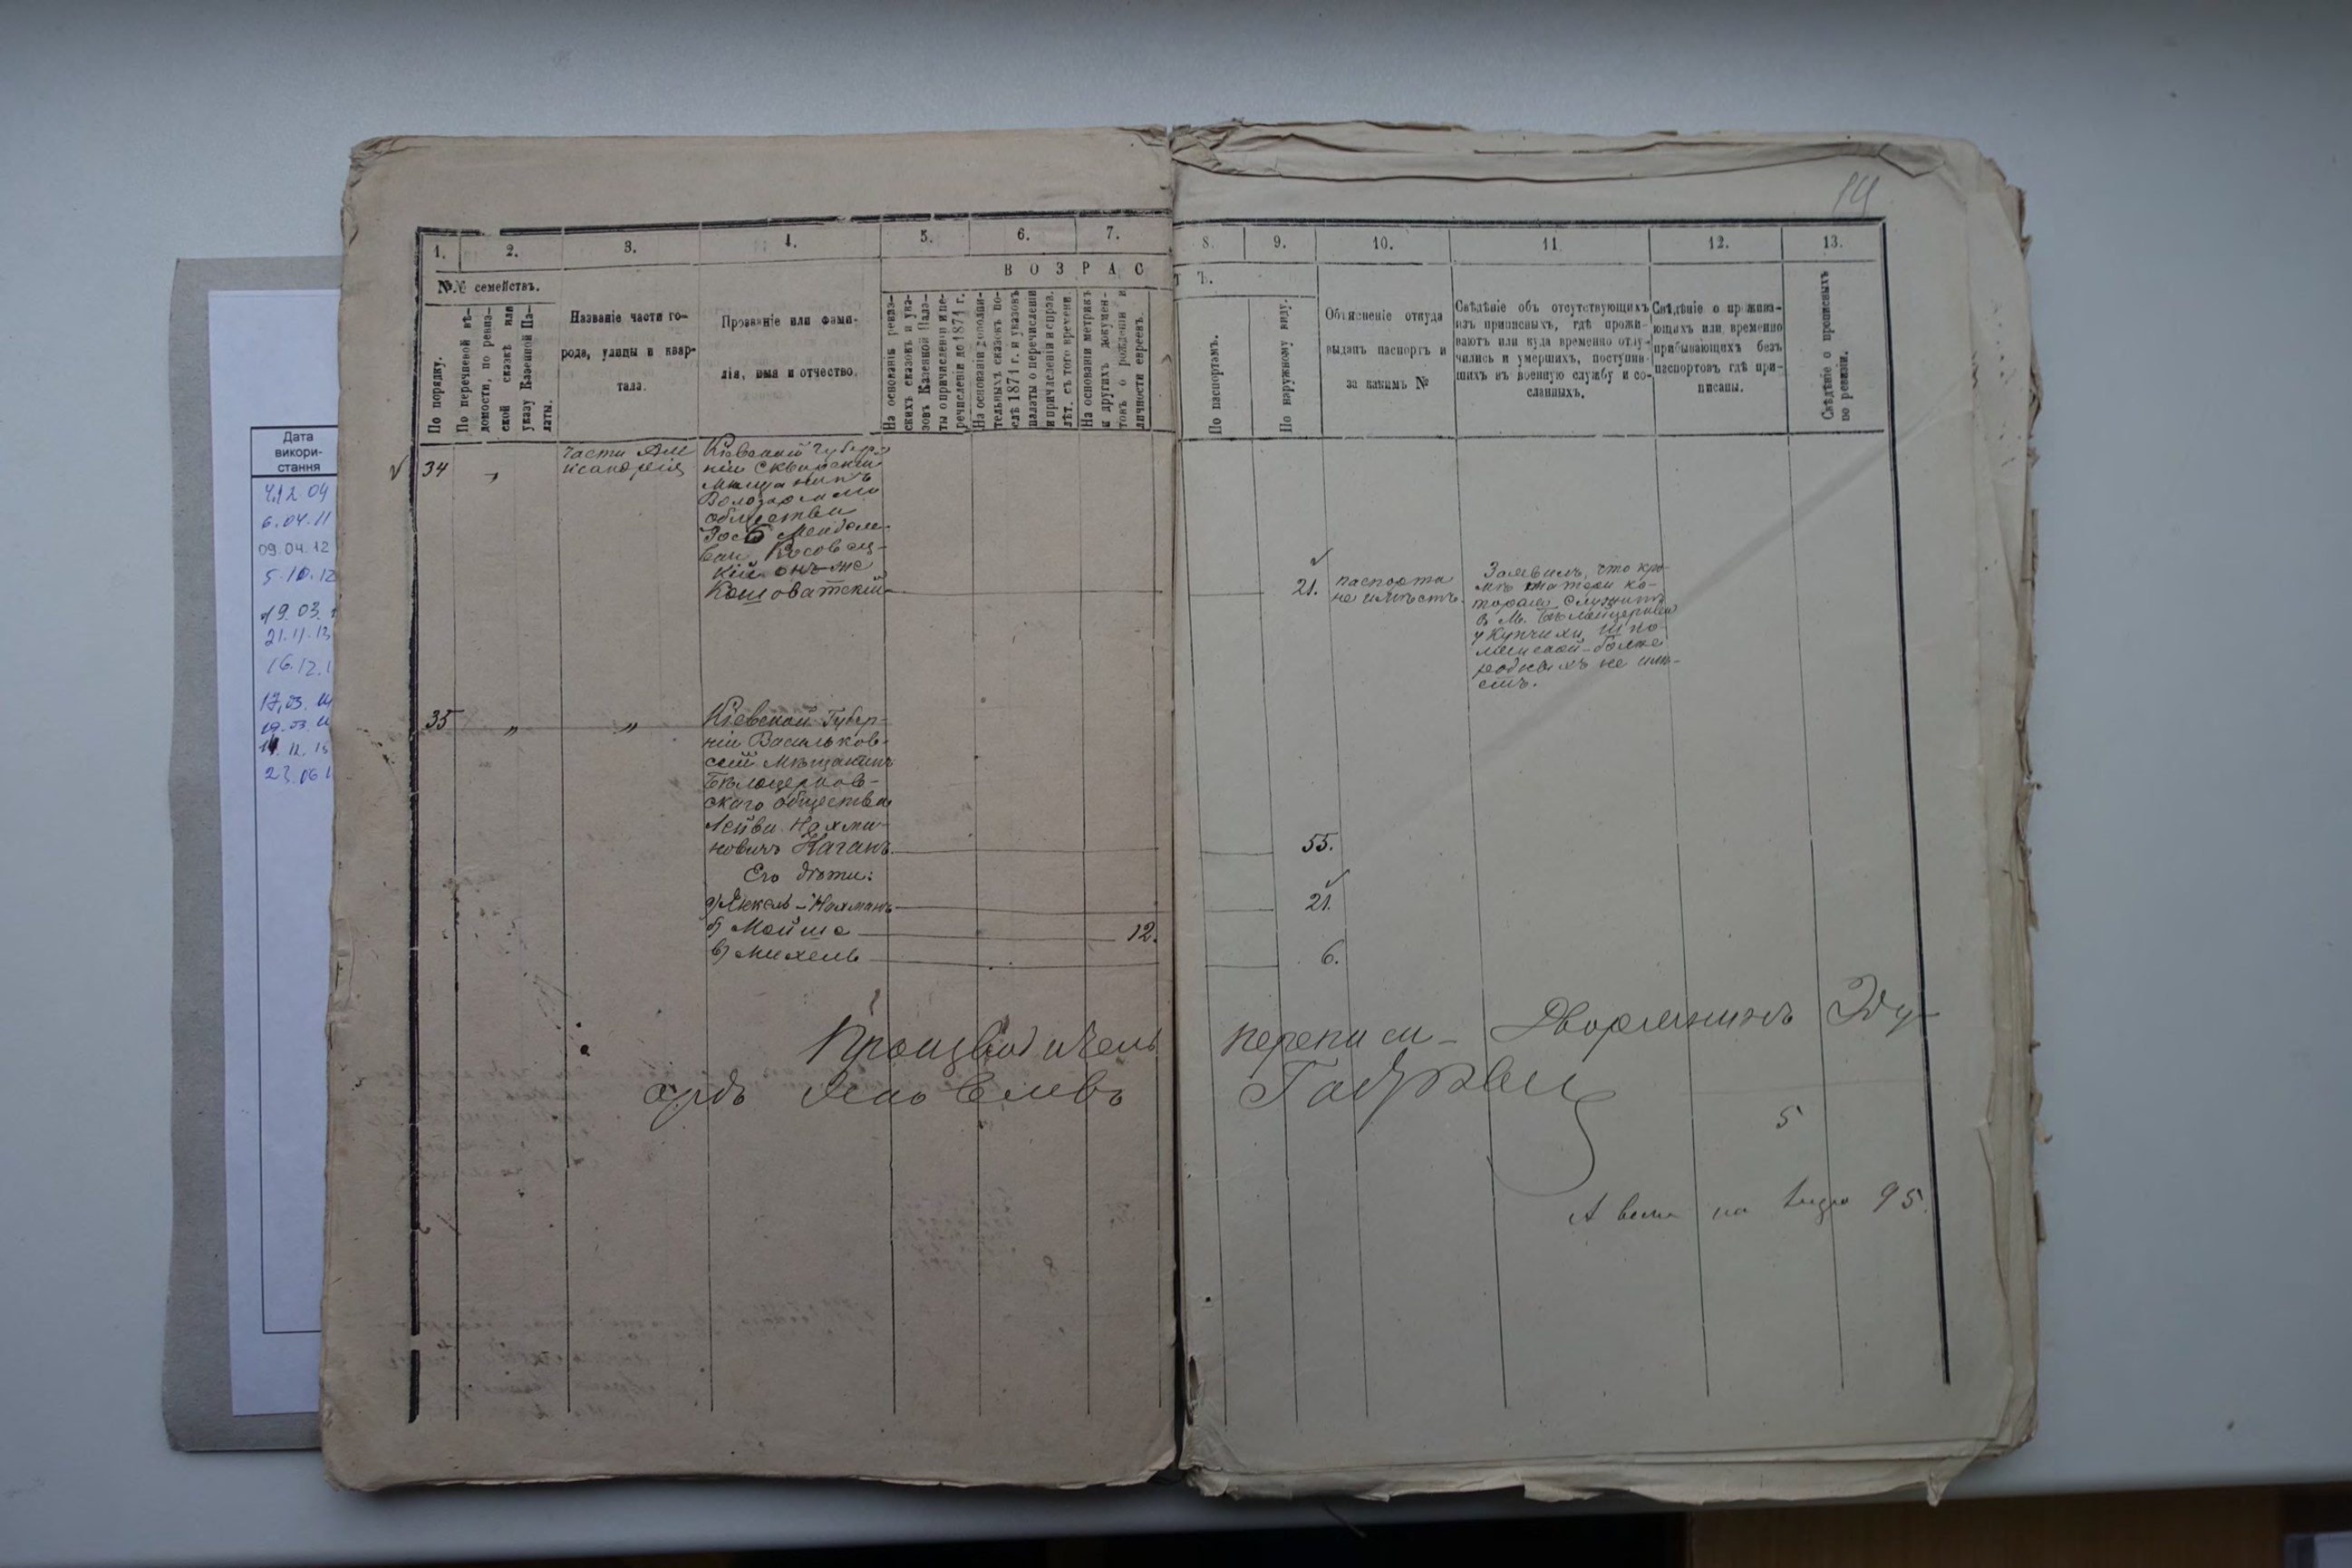 Дата
викори-
стання
09.04.12
19.03.
21.11.13
16.12.1
14
1. 2. 3. 4. 5. 6. 7. 8. 9. 10. 11. 12. 13.
В О З Р А С Т Ъ.
№№ семействъ.
По порядку.
По перечневой вѣ-
домости, по ревиз-
ской сказкѣ или
указу Казенной Па-
латы.
Названіе части го-
рода, улицы и квар-
тала.
Прозваніе или фами-
лія, имя и отчество.
На основаніи ревиз-
скихъ сказокъ и ука-
зовъ Казенной Пала-
ты о причисленіи и пе-
речисленіи до 1871 г.
На основаніи дополни-
тельныхъ сказокъ по-
слѣ 1871 г. и указовъ
палаты о перечисленіи
и причисленіи и справ.
лѣт. съ того времени.
На основаніи метрикъ
и другихъ докумен-
товъ о рожденіи и
личности евреевъ.
По паспортамъ.
По наружному виду.
Объясненіе откуда
выданъ паспортъ и
за какимъ №
Свѣдѣніе объ отсутствующихъ
изъ приписныхъ, гдѣ прожи-
ваютъ или куда временно отлу-
чились и умершихъ, поступив-
шихъ въ военную службу и со-
сланныхъ.
Свѣдѣніе о прожива-
ющихъ или временно
прибывающихъ безъ
паспортовъ гдѣ при-
писаны.
Свѣдѣніе о прописныхъ
по ревизіи.
34 „
части Але
ксандрія
Кіевской Губер-
ніи Сквирскій
Мѣщанинъ
общества
Кій онъ же
Кошоватскій
21.
паспорта
не имѣетъ.
Заявилъ, что кро-
мѣ матери ко-
торая служитъ
в М. Бѣлойцеркви
у Купчихи Шпо-
лянской - болѣе
родныхъ не имѣ-
етъ.
35 „ „
Кіевской Губер-
ніи Васильков-
скій Мѣщанинъ
Бѣлоцерков-
скаго общества
Лейба Нахма-
новичъ Каганъ
55.
Его дѣти:
а) Янкель-Нахманъ
21.
б) Мойше
12.
в) Михель
6.
Производитель переписи - Дворянинъ Эду-
ардъ Яковлевъ
5
А всего на лицо 95.